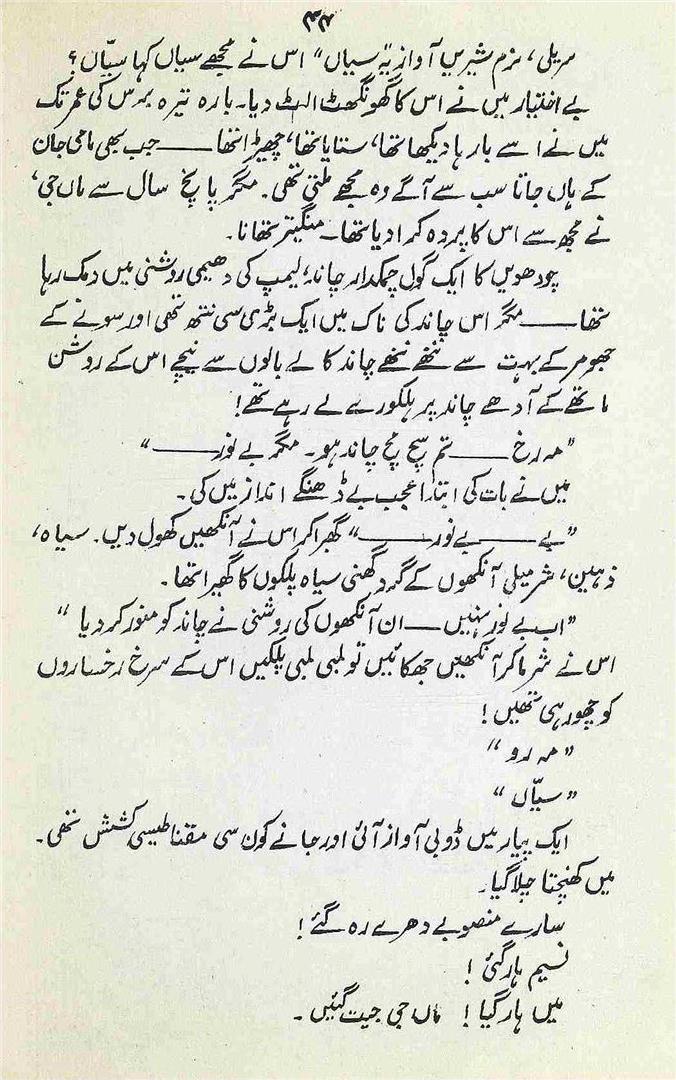 ۴۴
سریلی، نرم شیریں آواز یہ "سیاں" اس نے مجھے سیاں کہا سیّاں؟
بے اختیار میں نے اس کا گھونگھٹ الٹ دیا۔ بارہ تیرہ برس کی عمر تک
میں نے اسے بارہا دیکھا تھا، ستایا تھا، چھیڑا تھا —— جب بھی مامی جان
کے ہاں جاتا سب سے آگے وہ مجھے ملتی تھی۔ مگر پانچ سال سے ماں جی،
نے مجھ سے اس کا پردہ کرا دیا تھا۔ منگیتر تھا نا۔
چودھویں کا ایک گول چمکدار چاند، لیمپ کی دھیمی روشنی میں دمک رہا
تھا —— مگر اس چاند کی ناک میں ایک بڑی سی نتھ تھی اور سونے کے
جھومر کے بہت سے ننھے ننھے چاند کالے بالوں سے نیچے اس کے روشن
ماتھے کے آدھے چاند پر ہلکورے لے رہے تھے!
"مہ رخ —— تم سچ مچ چاند ہو۔ مگر بے نور ——"
میں نے بات کی ابتدا عجب بے ڈھنگے انداز میں کی۔
"بے —— بے نور ——" گھبرا کر اس نے آنکھیں کھول دیں۔ سیاہ،
ذہین، شرمیلی آنکھوں کے گرد گھنی سیاہ پلکوں کا گھیرا تھا۔
"اب بے نور نہیں — ان آنکھوں کی روشنی نے چاند کو منور کر دیا"
اس نے شرما کر آنکھیں جھکائیں تو لمبی لمبی پلکیں اس کے سرخ رخساروں
کو چھو رہی تھیں!
"مہ رو"
"سیّاں"
ایک پیار میں ڈوبی آواز آئی اور جانے کون سی مقناطیسی کشش تھی۔
میں کھنچتا چلا گیا۔
سارے منصوبے دھرے رہ گئے!
نسیم ہار گئی!
میں ہار گیا! ماں جی جیت گئیں۔